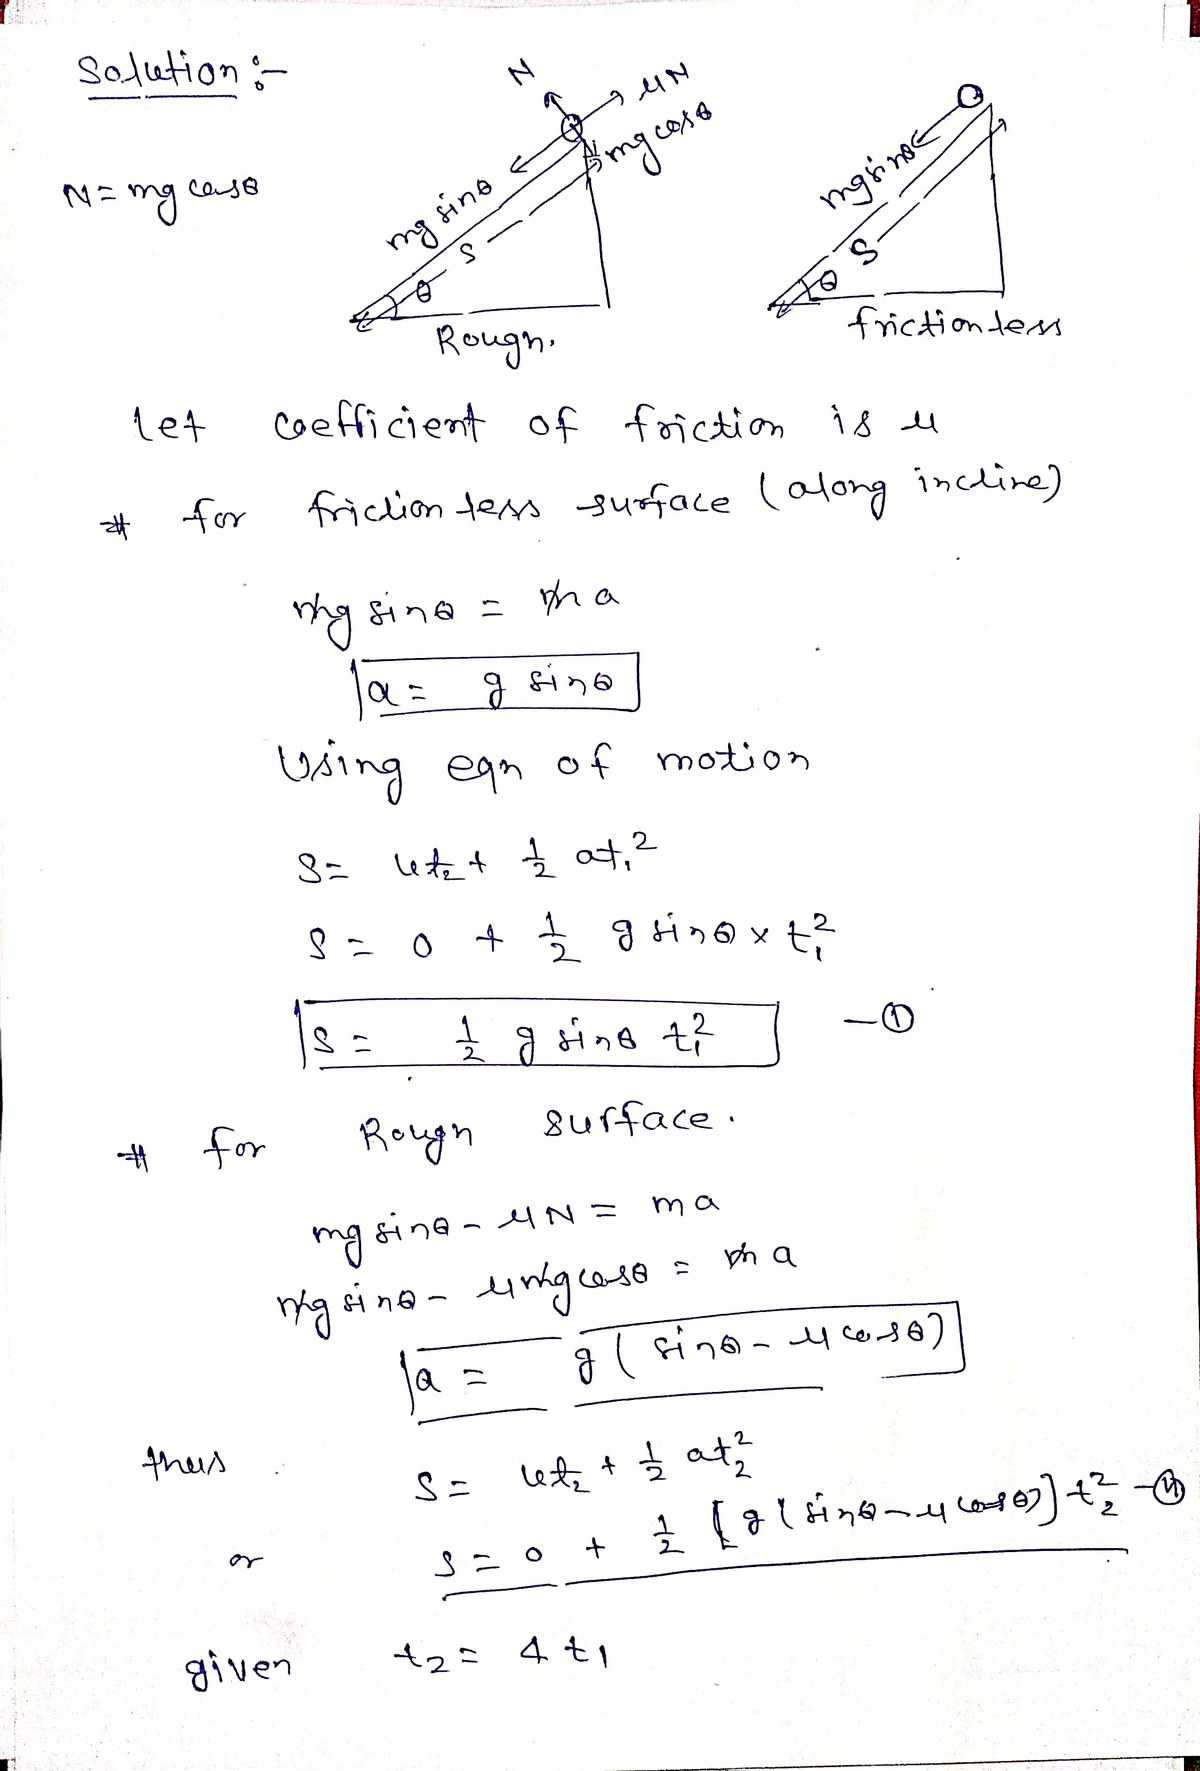 Solution :-
N
μN
mg cosθ
mg sinθ
S
θ
Rough.
mg sinθ
S
θ
frictionless
N = mg cosθ
let coefficient of friction is μ
# for frictionless surface (along incline)
mg sinθ = ma
a = g sinθ
Using eqn of motion
S = ut₂ + 1/2 at₁²
S = 0 + 1/2 g sinθ x t₁²
S = 1/2 g sinθ t₁² - ①
# for Rough surface.
mg sinθ - μN = ma
mg sinθ - μmg cosθ = ma
a = g (sinθ - μ cosθ)
thus S = ut₂ + 1/2 at₂²
or S = 0 + 1/2 [g(sinθ - μ cosθ)] t₂² - ⑪
given t₂ = 4 t₁